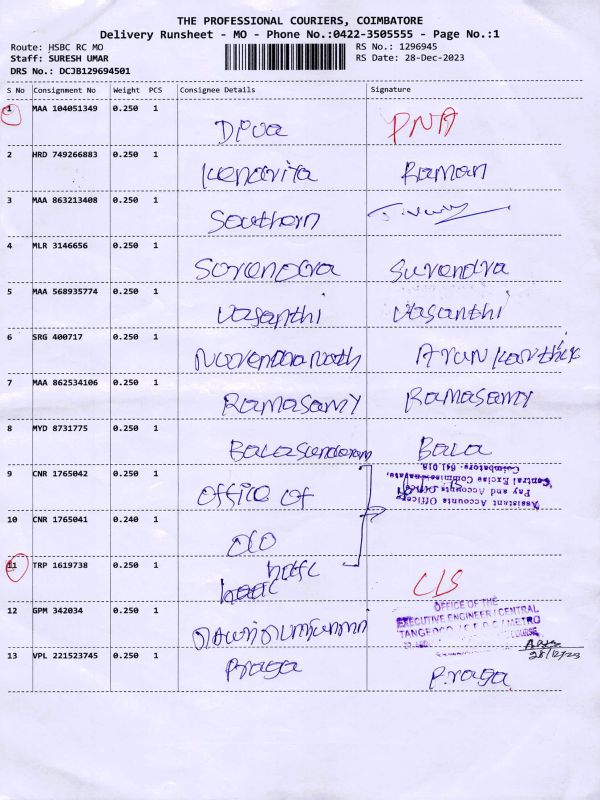 THE PROFESSIONAL COURIERS, COIMBATORE
Delivery Runsheet - MO - Phone No.:0422-3505555 - Page No.:1
Route: HSBC RC MO RS No.: 1296945
Staff: SURESH UMAR RS Date: 28-Dec-2023
DRS No.: DCJB129694501
S No Consignment No Weight PCS Consignee Details Signature
1 MAA 104051349 0.250 1
PNA
2 HRD 749266883 0.250 1
Raman
3 MAA 863213408 0.250 1
Southern
4 MLR 3146656 0.250 1
Sorendra Surendra
5 MAA 568935774 0.250 1
Vasanthi Vasanthi
6 SRG 400717 0.250 1
Narendranath Arun Karthik
7 MAA 862534106 0.250 1
Ramasamy Ramasamy
8 MYD 8731775 0.250 1
Balasundaram Bala
9 CNR 1765042 0.250 1
Office of
Assistant Accounts Officer
Pay and Accounts Office
Central Excise Commissionerate,
Coimbatore- 641 018.
10 CNR 1765041 0.240 1
O/O
11 TRP 1619738 0.250 1
CLS
12 GPM 342034 0.250 1
OFFICE OF THE
EXECUTIVE ENGINEER / CENTRAL
METRO
28/12/23
13 VPL 221523745 0.250 1
Praga Praga